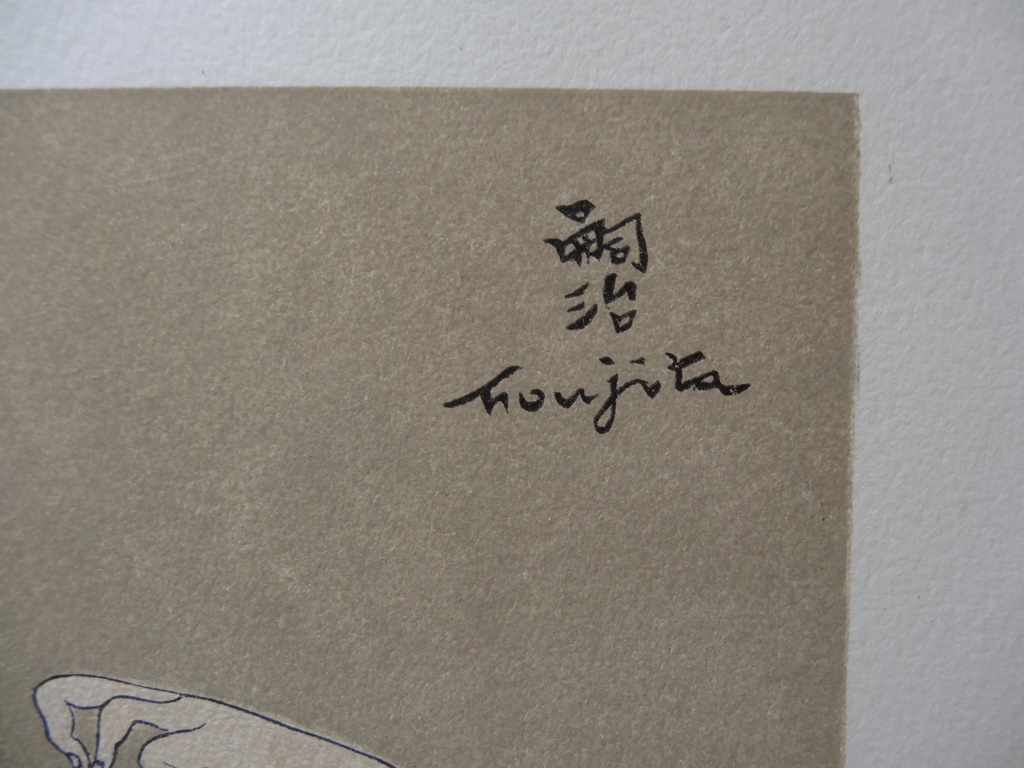 嗣
治
foujita